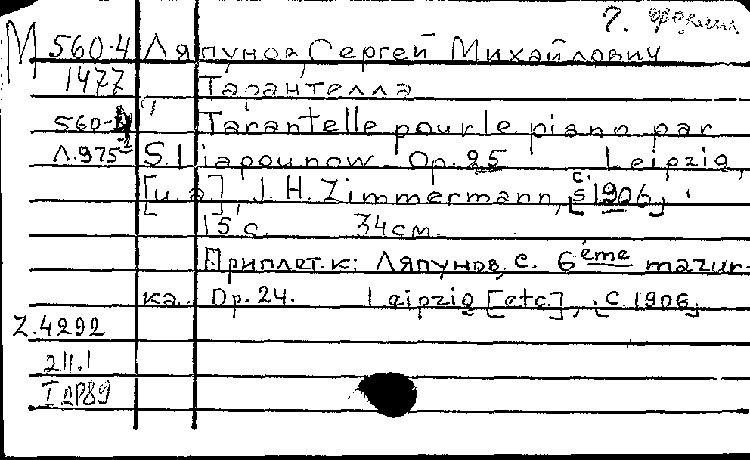 7.
М 560-4 Ляпунов, Сергей Михайлович
1477 Тарантелла
560-4 Tarantelle pour le piano par
Л.975 S. Liapounow. Op. 25 Leipzig,
[u. a], J. H. Zimmermann, [c 1906].
15 с. 34 см.
Приплет. к: Ляпунов, С. 6ème mazur-
ka. Op. 24. Leipzig [etc.], [c 1906]
Z.4292
211.1
I 2P89